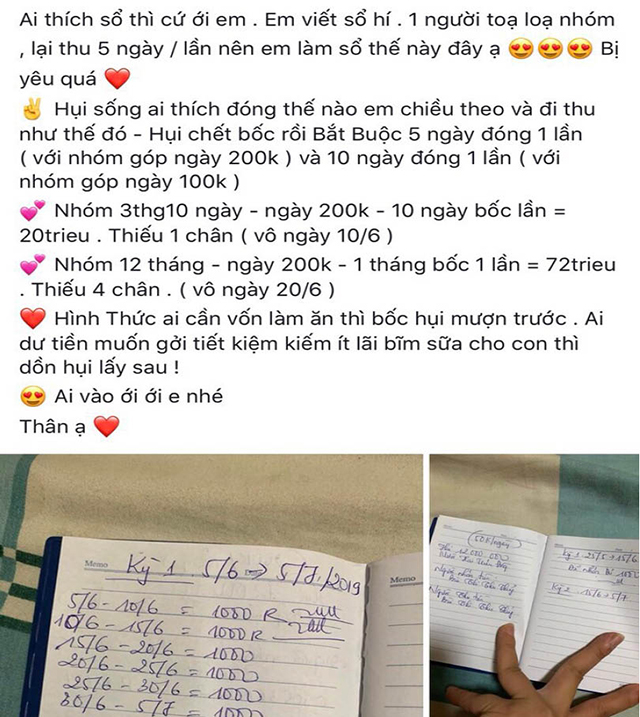 Ai thích sổ thì cứ ới em . Em viết sổ hí . 1 người toạ loạ nhóm
, lại thu 5 ngày / lần nên em làm sổ thế này đây ạ 😍😍😍 Bị
yêu quá ❤️
✌️ Hụi sống ai thích đóng thế nào em chiều theo và đi thu
như thế đó - Hụi chết bốc rồi Bắt Buộc 5 ngày đóng 1 lần
( với nhóm góp ngày 200k ) và 10 ngày đóng 1 lần ( với
nhóm góp ngày 100k )
💕 Nhóm 3thg10 ngày - ngày 200k - 10 ngày bốc lần =
20trieu . Thiếu 1 chân ( vô ngày 10/6 )
💕 Nhóm 12 tháng - ngày 200k - 1 tháng bốc 1 lần = 72trieu
. Thiếu 4 chân . ( vô ngày 20/6 )
❤️ Hình Thức ai cần vốn làm ăn thì bốc hụi mượn trước . Ai
dư tiền muốn gởi tiết kiệm kiếm ít lãi bĩm sữa cho con thì
dồn hụi lấy sau !
😍 Ai vào ới ới e nhé
Thân ạ ❤️
Memo
Kỳ 1 5/6 → 5/7/2019
Memo
5/6 - 10/6 = 1000 R
10/6 - 15/6 = 1000 R
15/6 - 20/6 = 1000
20/6 - 25/6 = 1000
25/6 - 30/6 = 1000
30/6 - 5/7 = 1000
50k/ngày
Kỳ 1 25/5 → 15/6
Kỳ 2 15/6 → 5/7